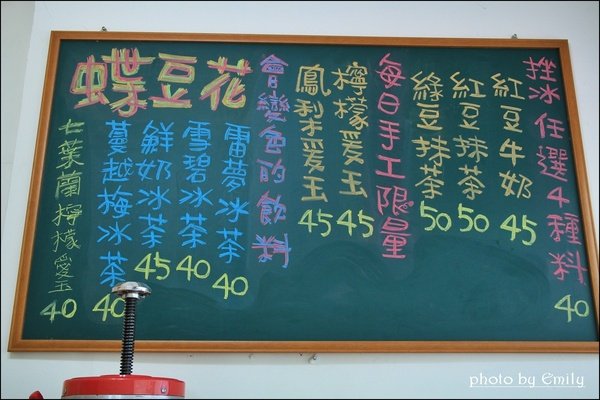 蝶豆花
挫冰任選4種料
40
紅豆牛奶
45
紅豆抹茶
50
綠豆抹茶
50
每日手工限量
檸檬愛玉
45
鳳梨愛玉
45
會變色的飲料
雷夢冰茶
40
雪碧冰茶
40
鮮奶冰茶
45
蔓越梅冰茶
40
七葉蘭檸檬愛玉
40
photo by Emily